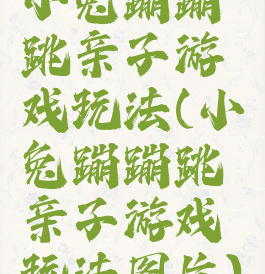 小兔蹦蹦
跳亲子游
戏玩法(小
兔蹦蹦跳
亲子游戏
玩法图片)